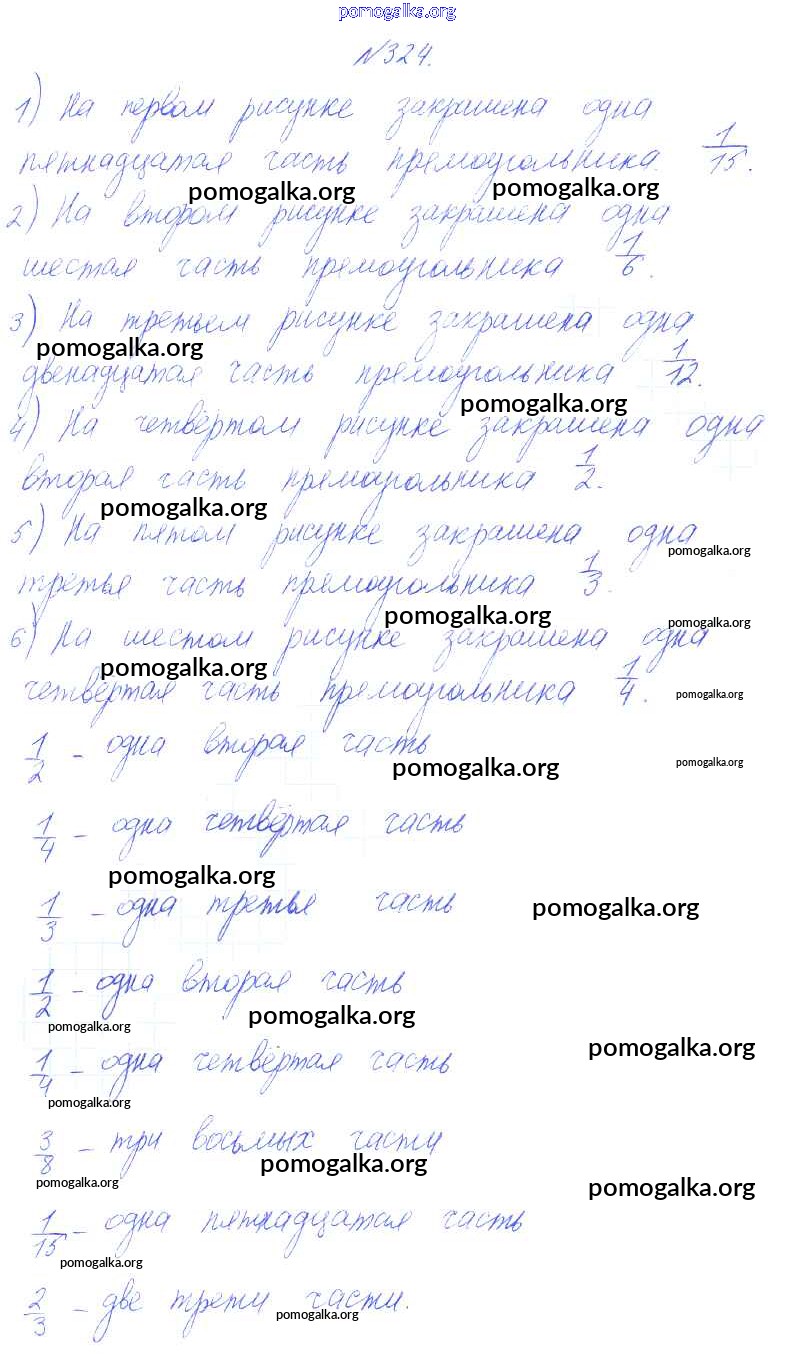 pomogalka.org
№324.
1) На первом рисунке закрашена одна
пятнадцатая часть прямоугольника. 1/15.
pomogalka.org pomogalka.org
2) На втором рисунке закрашена одна
шестая часть прямоугольника 1/6.
3) На третьем рисунке закрашена одна
pomogalka.org
двенадцатая часть прямоугольника 1/12.
pomogalka.org
4) На четвёртом рисунке закрашена одна
вторая часть прямоугольника 1/2.
pomogalka.org
5) На пятом рисунке закрашена одна
pomogalka.org
третья часть прямоугольника 1/3.
pomogalka.org pomogalka.org
6) На шестом рисунке закрашена одна
pomogalka.org
четвёртая часть прямоугольника 1/4.
pomogalka.org
1/2 - одна вторая часть
pomogalka.org pomogalka.org
1/4 - одна четвёртая часть
pomogalka.org
1/3 - одна третья часть
pomogalka.org
1/2 - одна вторая часть
pomogalka.org pomogalka.org
pomogalka.org
1/4 - одна четвёртая часть
pomogalka.org
3/8 - три восьмых части
pomogalka.org
pomogalka.org pomogalka.org
1/15 - одна пятнадцатая часть
pomogalka.org
2/3 - две трети части.
pomogalka.org